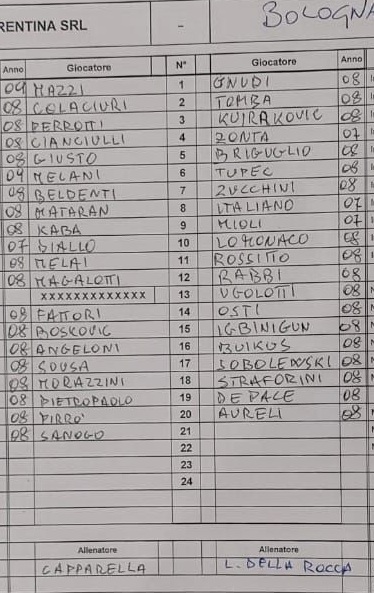 RENTINA SRL - BOLOGNA
Anno Giocatore N° Giocatore Anno
09 MAZZI 1 GNUDI 08
08 COLACIURI 2 TOMBA 08
08 PERROTTI 3 KUJRAKOVIC 08
08 CIANCIULLI 4 ZONTA 07
08 GIUSTO 5 BRIGUGLIO 08
09 MELANI 6 TUPEC 08
08 BELDENTI 7 ZUCCHINI 08
08 MATARAN 8 ITALIANO 07
08 KABA 9 MIOLI 07
07 DIALLO 10 LOMONACO 08
08 MELAI 11 ROSSITTO 08
08 MAGALOTTI 12 BABBI 08
XXXXXXXXXXXXX 13 UGOLOTTI 08
08 FATTORI 14 OSTI 08
08 BOSKOVIC 15 IGBINIGUN 08
08 ANGELONI 16 BUIKUS 08
08 SOUSA 17 SOBOLEWSKI 08
08 MORAZZINI 18 STRAFORINI 08
08 PIETROPAOLO 19 DE PACE 08
08 PIRRO' 20 AURELI 08
08 SANOGO 21
22
23
24
Allenatore Allenatore
CAPPARELLA L. DELLA ROCCA